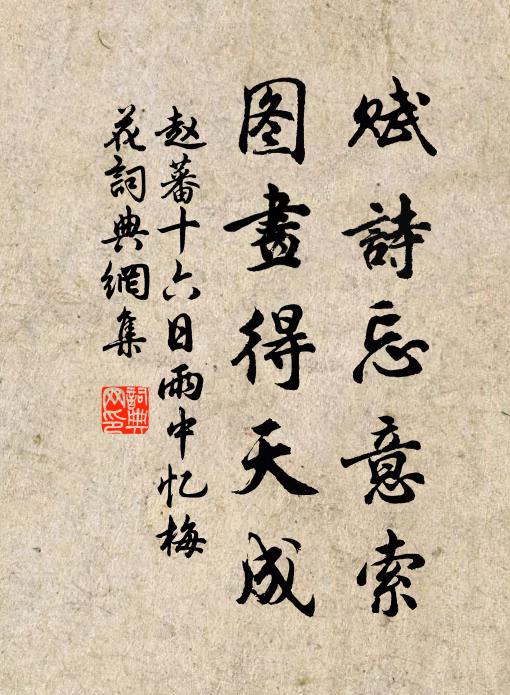 赋詩忘意索
图畫得天成
赵蕃十六日雨中忆梅
花詞典網集
詞典网印